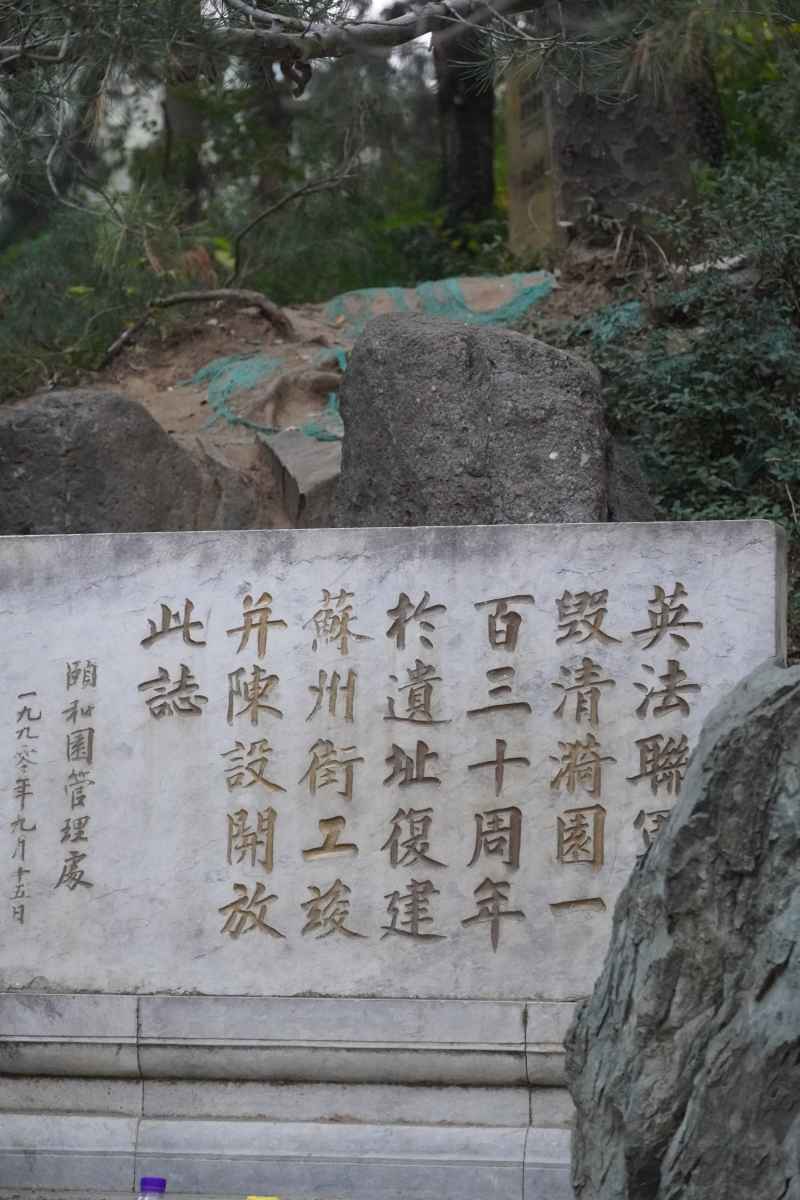 英法聯軍
毀清漪園一
百三十周年
於遺址復建
蘇州街工竣
并陳設開放
此誌
頤和園管理處
一九九〇年九月十五日